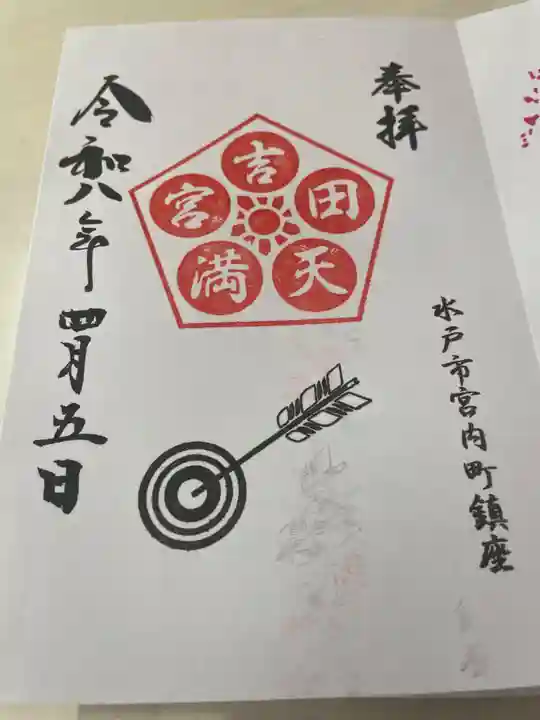 奉拝
水戸市宮内町鎮座
吉田天満宮
令和八年四月五日